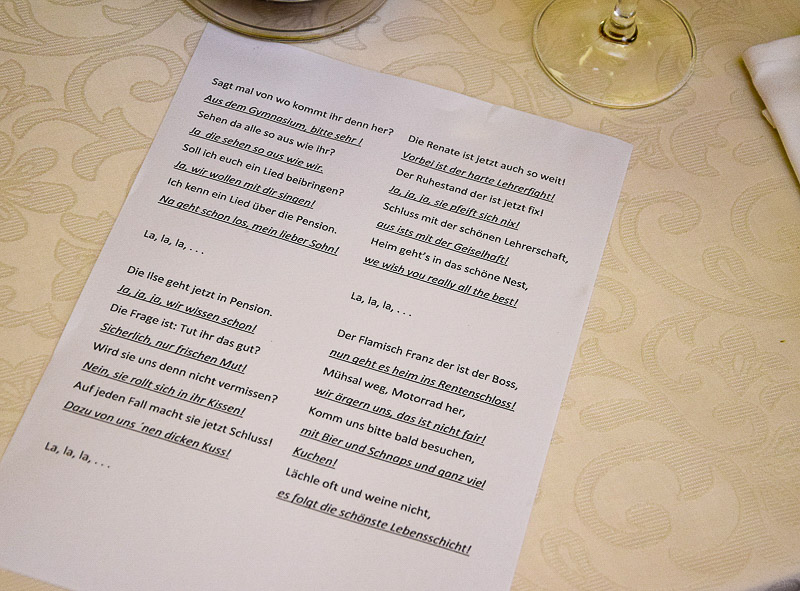 Sagt mal von wo kommt ihr denn her?
Aus dem Gymnasium, bitte sehr !
Sehen da alle so aus wie ihr?
Ja die sehen so aus wie wir.
Soll ich euch ein Lied beibringen?
Ja, wir wollen mit dir singen!
Ich kenn ein Lied über die Pension.
Na geht schon los, mein lieber Sohn!
La, la, la, . . .
Die Ilse geht jetzt in Pension.
Ja, ja, ja, wir wissen schon!
Die Frage ist: Tut ihr das gut?
Sicherlich, nur frischen Mut!
Wird sie uns denn nicht vermissen?
Nein, sie rollt sich in ihr Kissen!
Auf jeden Fall macht sie jetzt Schluss!
Dazu von uns ´nen dicken Kuss!
La, la, la, . . .
Die Renate ist jetzt auch so weit!
Vorbei ist der harte Lehrerfight!
Der Ruhestand der ist jetzt fix!
Ja, ja, ja, sie pfeift sich nix!
Schluss mit der schönen Lehrerschaft,
aus ists mit der Geiselhaft!
Heim geht's in das schöne Nest,
we wish you really all the best!
La, la, la, . . .
Der Flamisch Franz der ist der Boss,
nun geht es heim ins Rentenschloss!
Mühsal weg, Motorrad her,
wir ärgern uns, das ist nicht fair!
Komm uns bitte bald besuchen,
mit Bier und Schnaps und ganz viel
Kuchen!
Lächle oft und weine nicht,
es folgt die schönste Lebensschicht!